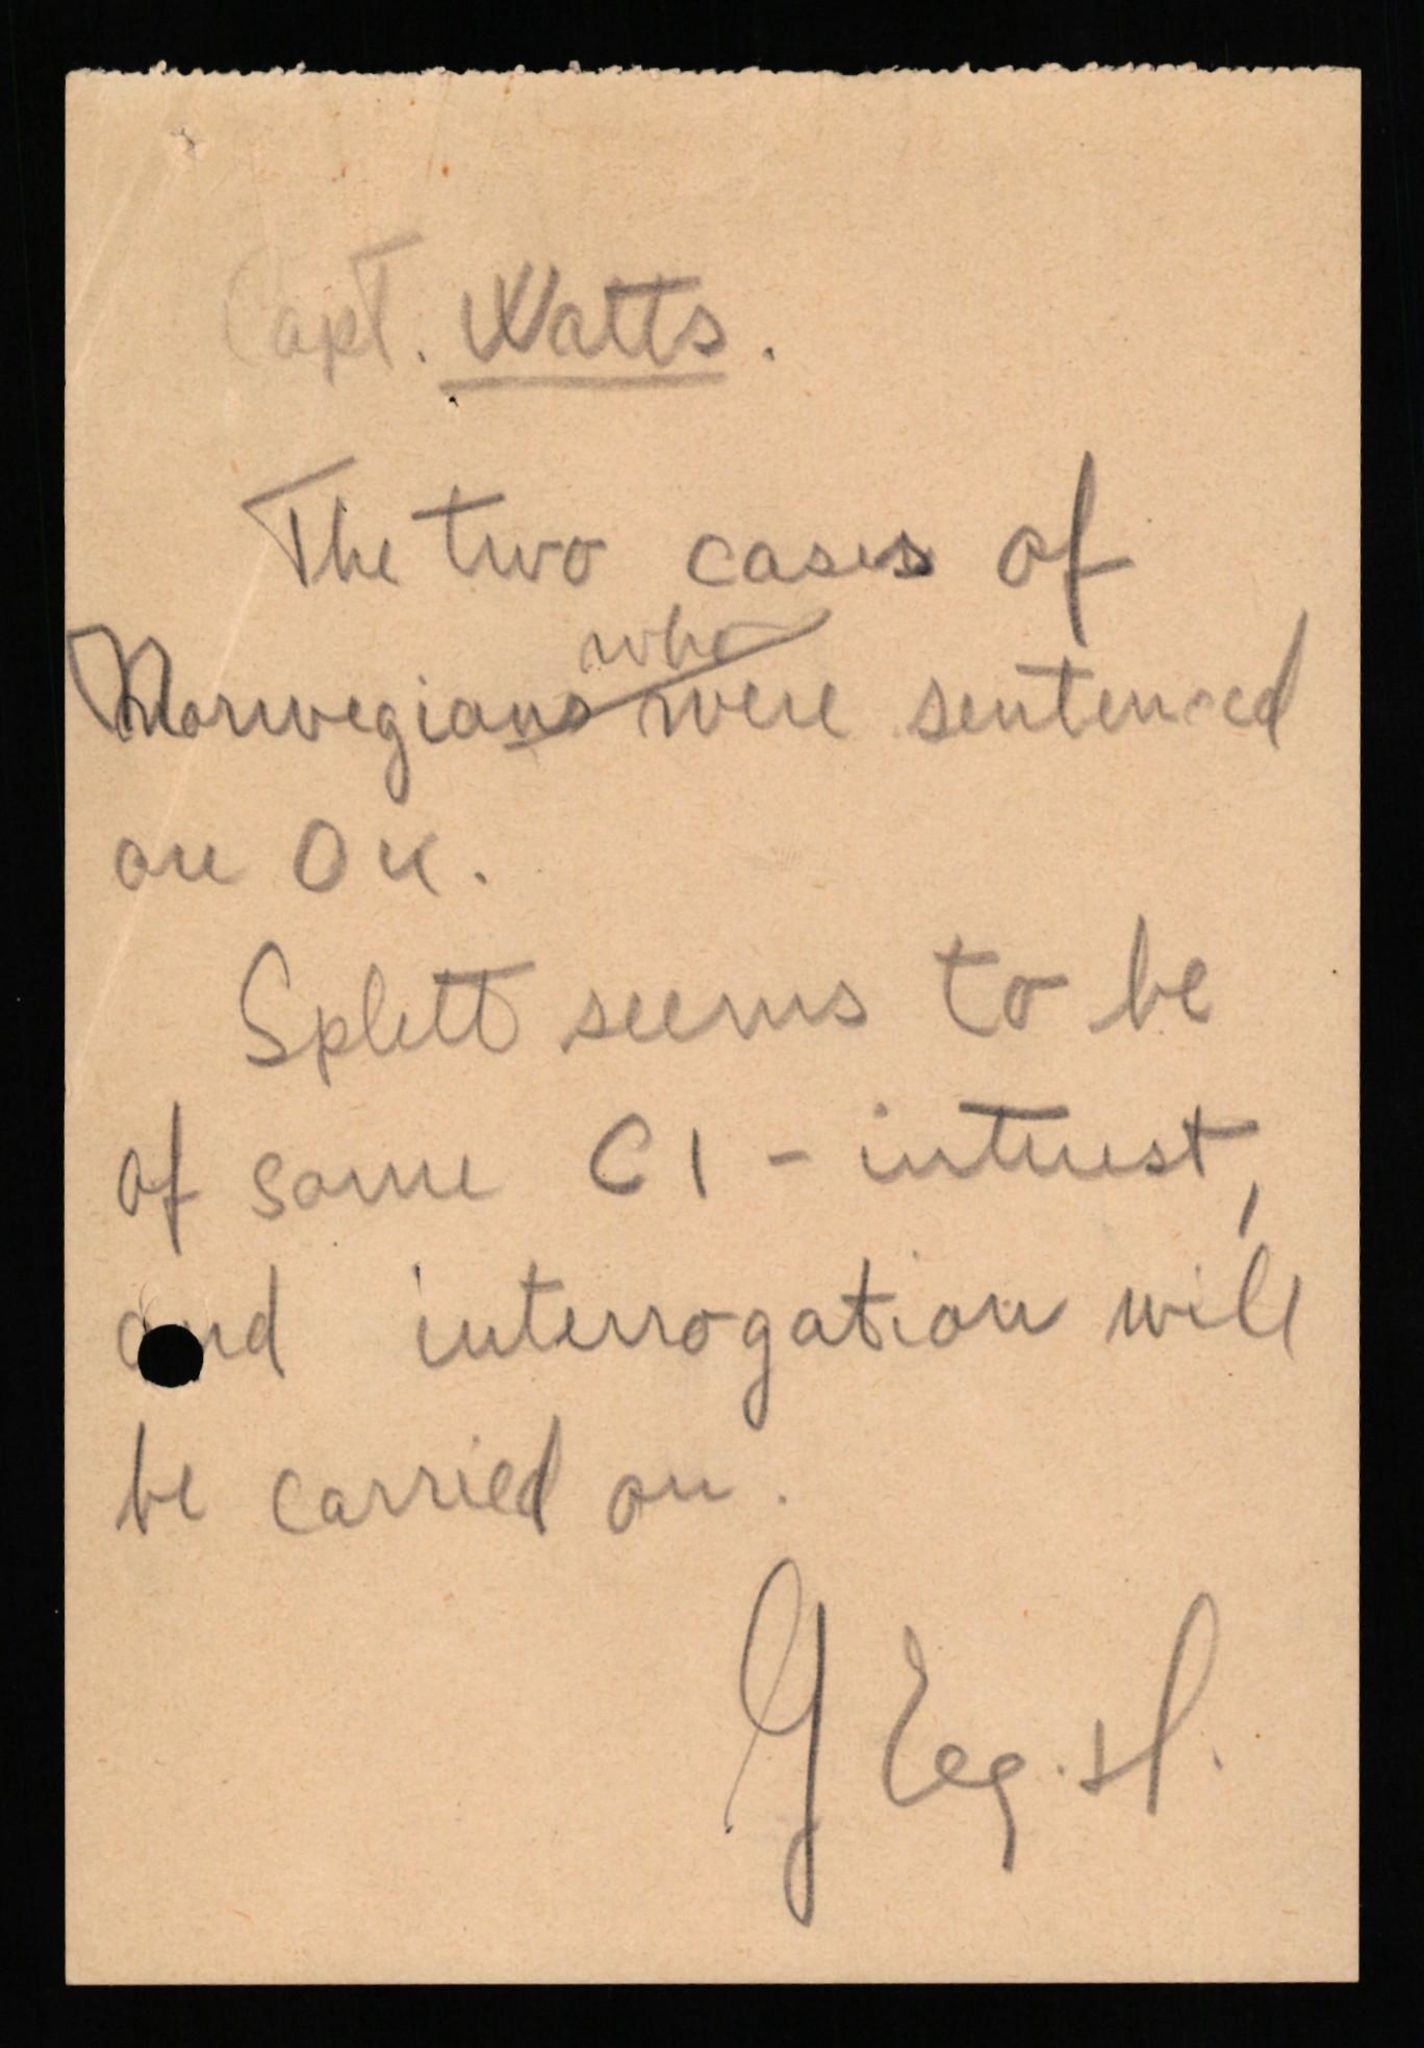 Capt. Watts.
The two cases of
who
Norwegians were sentenced
are OK.
Splett seems to be
of some CI - interest,
and interrogation will
be carried on.
G Eeg. H.